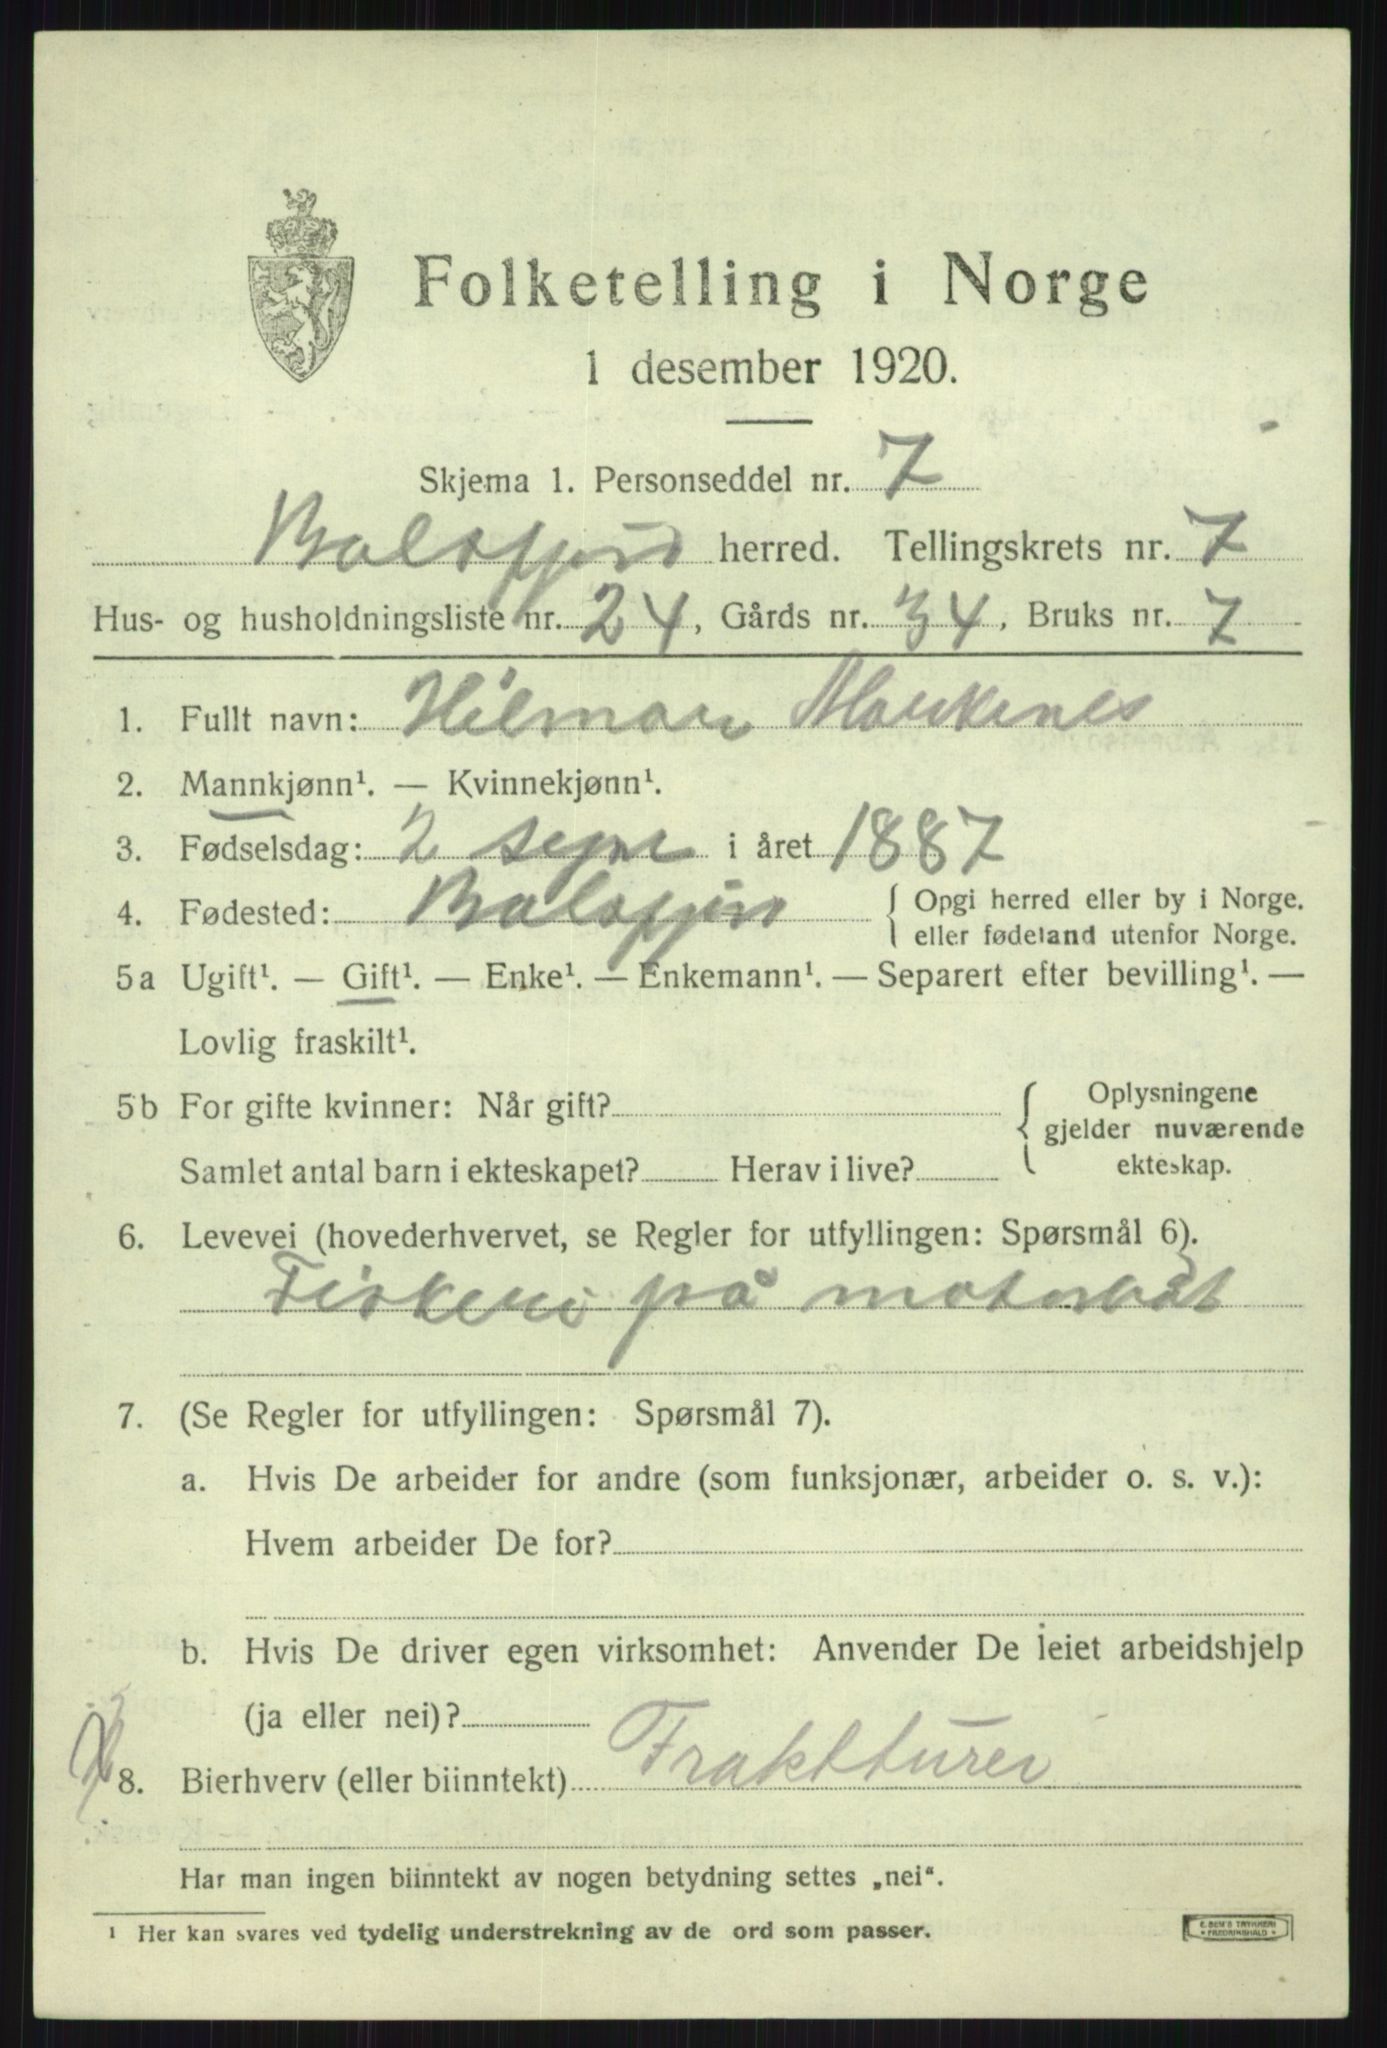 Folketelling i Norge
1 desember 1920.
Skjema 1. Personseddel nr. 7
Balsfjord herred. Tellingskrets nr. 7
Hus- og husholdningsliste nr. 24, Gårds nr. 34, Bruks nr. 7
1. Fullt navn: Hilmar Markenes
2. Mannkjønn¹. — Kvinnekjønn¹.
3. Fødselsdag: 2 i året 1887
4. Fødested: Balsfjord { Opgi herred eller by i Norge.
eller fødeland utenfor Norge.
5a Ugift¹. — Gift¹. — Enke¹. — Enkemann¹. — Separert efter bevilling¹. —
Lovlig fraskilt¹.
5b For gifte kvinner: Når gift? { Oplysningene
gjelder nuværende
Samlet antal barn i ekteskapet? Herav i live? ekteskap.
6. Levevei (hovederhvervet, se Regler for utfyllingen: Spørsmål 6).
Fiskeri på motorbåt
7. (Se Regler for utfyllingen: Spørsmål 7).
a. Hvis De arbeider for andre (som funksjonær, arbeider o. s. v.):
Hvem arbeider De for?
b. Hvis De driver egen virksomhet: Anvender De leiet arbeidshjelp
(ja eller nei)?
8. Bierhverv (eller biinntekt) Fraktturer
Har man ingen biinntekt av nogen betydning settes „nei“.
¹ Her kan svares ved tydelig understrekning av de ord som passer.
E. SEM'S TRYKKERI
FREDRIKSHALD